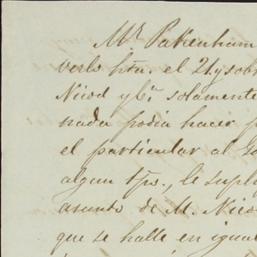 Mr. Pakenham
verlo hta. el 21 y sobr
Nicod y Ca. solamente
nada podia hacer p
el particular al Go
algun tpo., le supl
asunto de M. Nico
que se halle en igua